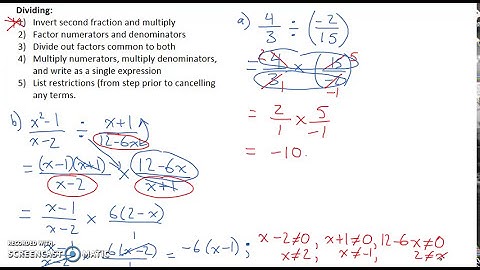 Dividing:
1) Invert second fraction and multiply
2) Factor numerators and denominators
3) Divide out factors common to both
4) Multiply numerators, multiply denominators,
and write as a single expression
5) List restrictions (from step prior to cancelling
any terms.
a) 4/3 ÷ (-2/15)
= 4/3 × 15/-2
= 2/1 × 5/-1
= -10.
b) x²-1/x-2 ÷ x+1/12-6x
= (x-1)(x+1)/x-2 × 12-6x/x+1
= x-1/x-2 × 6(2-x)/1
x-1/x-2 6(x-2)/1 = -6(x-1); x-2≠0, x+1≠0, 12-6x≠0
x≠2, x≠-1, 2≠x
RECORDED WITH
SCREENCAST MATIC